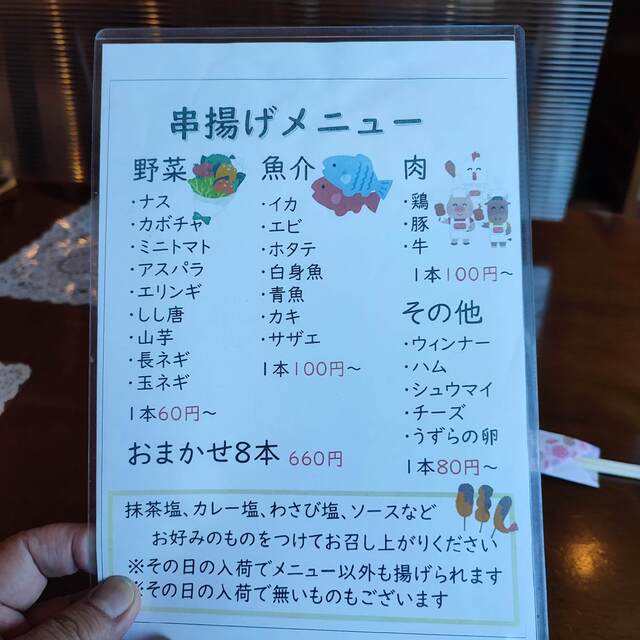 串揚げメニュー
野菜
・ナス
・カボチャ
・ミニトマト
・アスパラ
・エリンギ
・しし唐
・山芋
・長ネギ
・玉ネギ
1本60円～
魚介
・イカ
・エビ
・ホタテ
・白身魚
・青魚
・カキ
・サザエ
1本100円～
肉
・鶏
・豚
・牛
1本100円～
その他
・ウィンナー
・ハム
・シュウマイ
・チーズ
・うずらの卵
1本80円～
おまかせ8本 660円
抹茶塩、カレー塩、わさび塩、ソースなど
お好みのものをつけてお召し上がりください
※その日の入荷でメニュー以外も揚げられます
※その日の入荷で無いものもございます